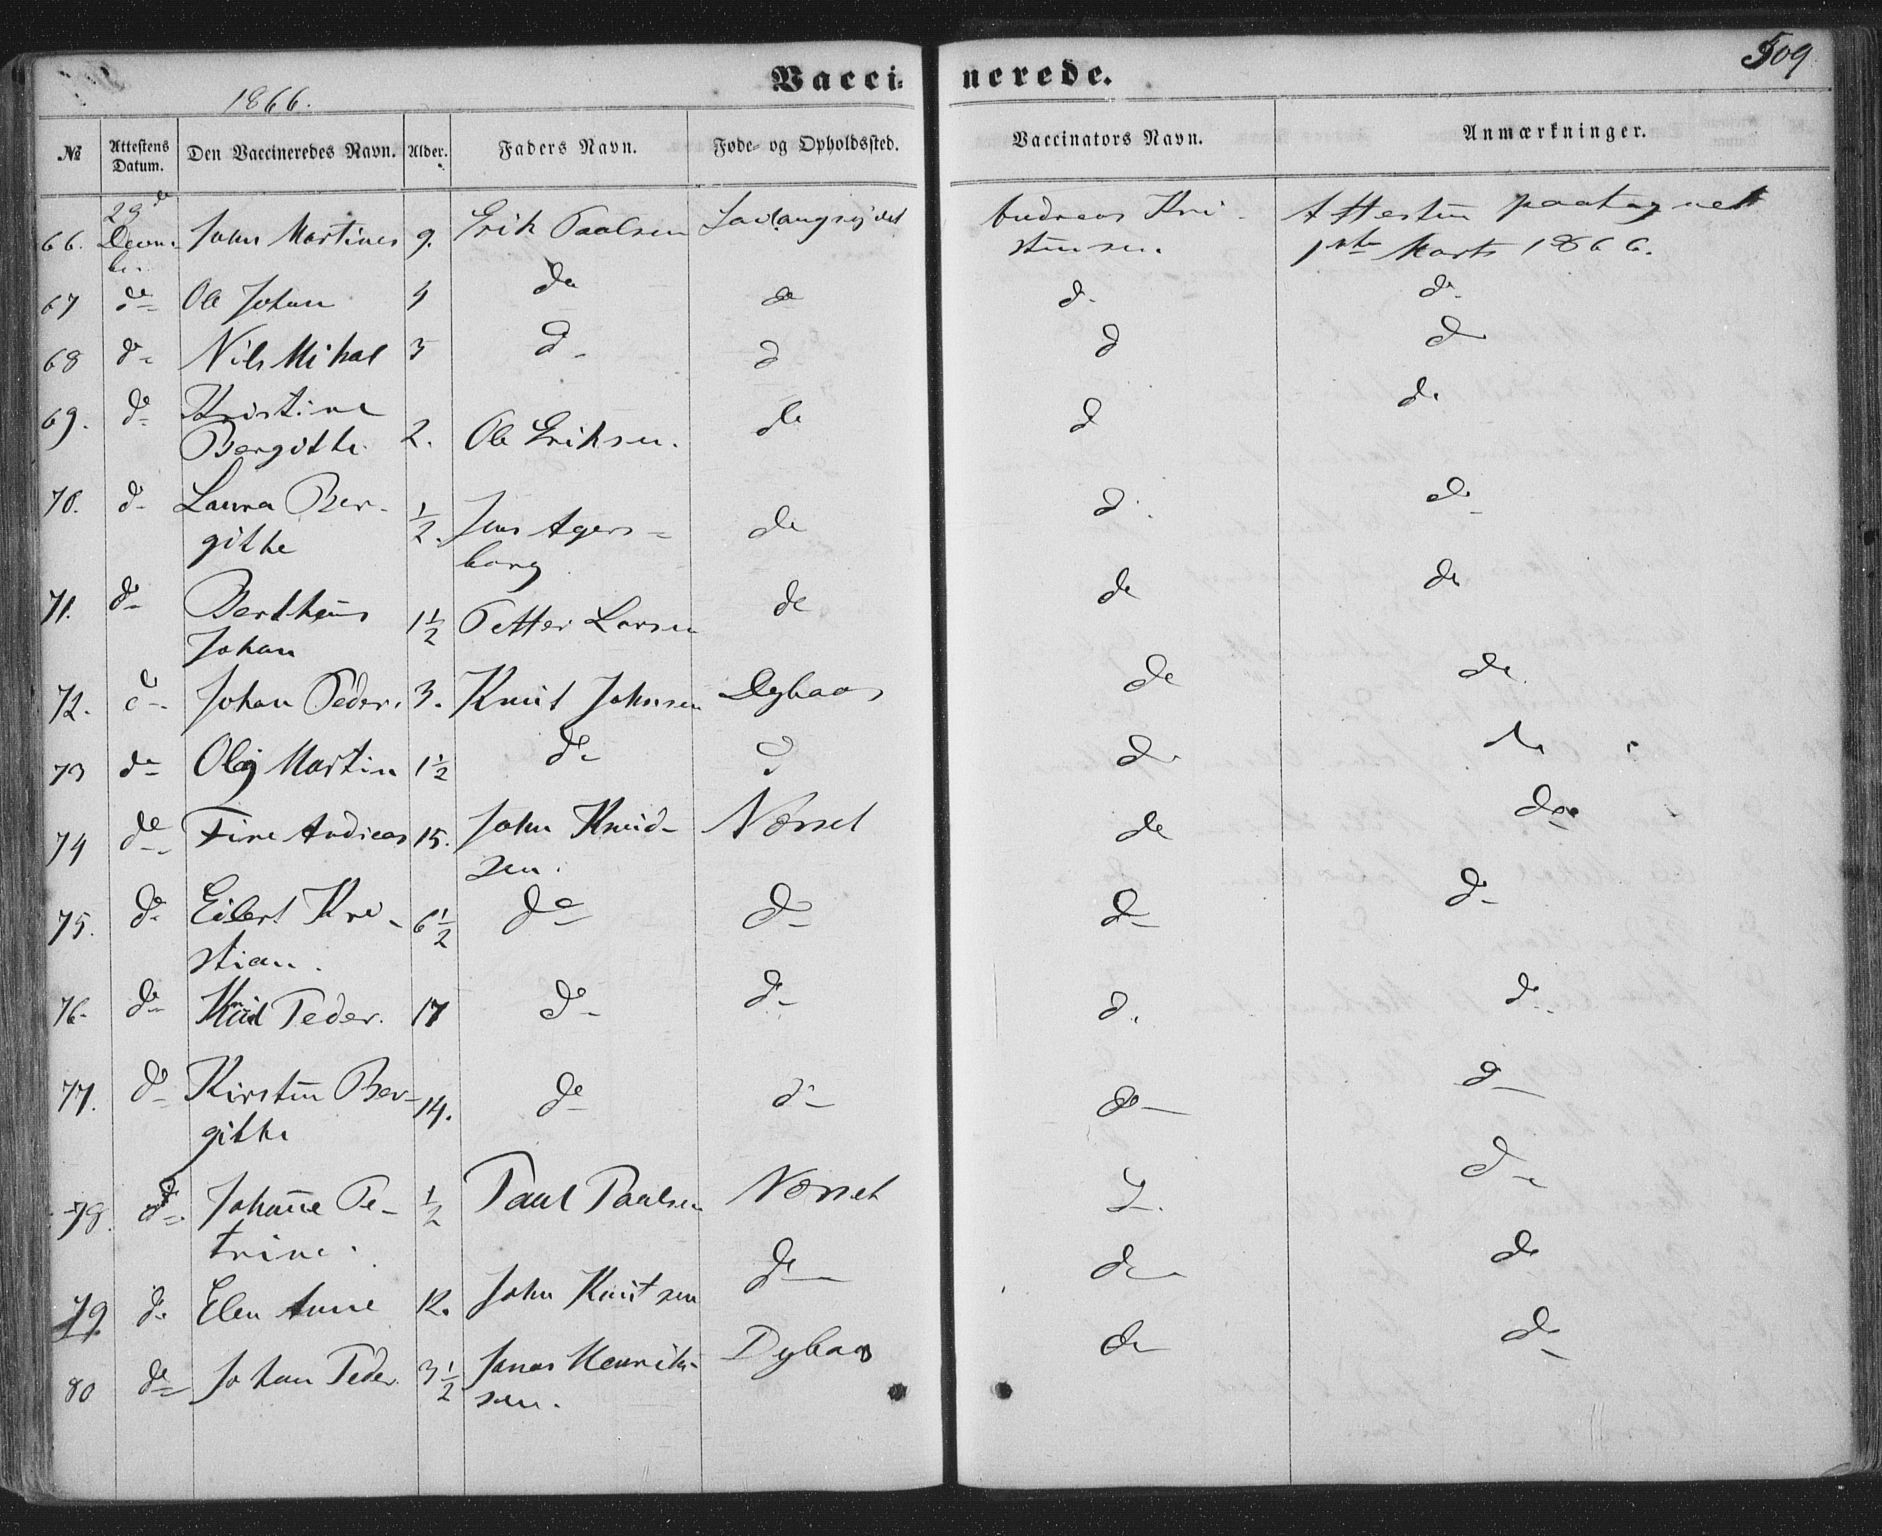 509
Vacci- nerede.
1866.
№ Attestens Datum. Den Vaccineredes Navn. Alder. Faders Navn. Føde- og Opholdssted. Vaccinators Navn. Anmærkninger.
66. 29de Decem- ber John Martines 9. Erik Paalsen Andreas Kri- Attesten paategnet
stensen. 1ste Marts 1866.
67 do Ole Johan 4 do do do do
68 do Nils Mikal 3 do do do do
69. do Kristine
Bergitthe. 2. Ole Eriksen. do do do
70. do Laura Ber-
githe 1/2. Jens Agers-
borg do do do
71. do Bertheus
Johan 1 1/2 Petter Larsen do do do
72. do Johan Peder. 3. Knut Johnsen Dybaas do do
73 do Martin 1 1/2 do do do do
74 do Andreas 15. John Knud-
sen. Nørset do do
75. do Eilert Kri-
stian. 6 1/2 do do do do
76. do Knut Peder. 17 do do do do
77. do Kirsten Ber-
githe 14. do do do do
78. do Johanne Pe-
trine. 1/2 Paul Paalsen Nørset do do
79 do Elen Anne 12. John Knutsen do do do
80 do Johan Peder. 3 1/2 Jonas Henrik-
sen. Dybaas do do